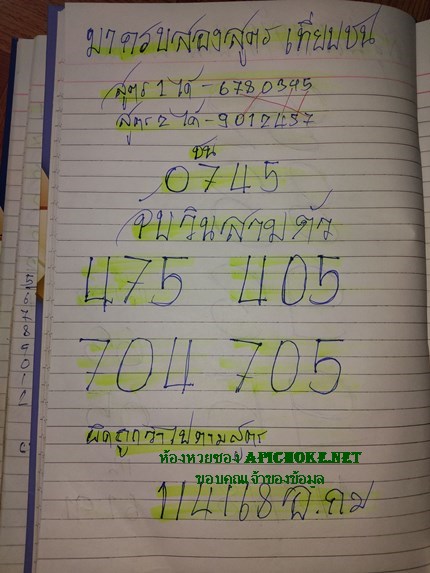 มาครบสองสูตร เทียบชน
สูตร 1 ได้ - 6780345
สูตร 2 ได้ - 9012457
ชน
0745
จับวินสามตัว
475 405
704 705
ผิดถูกว่าไปตามสูตร
ห้องหวยซอง APICHOKE.NET
ขอบคุณเจ้าของข้อมูล